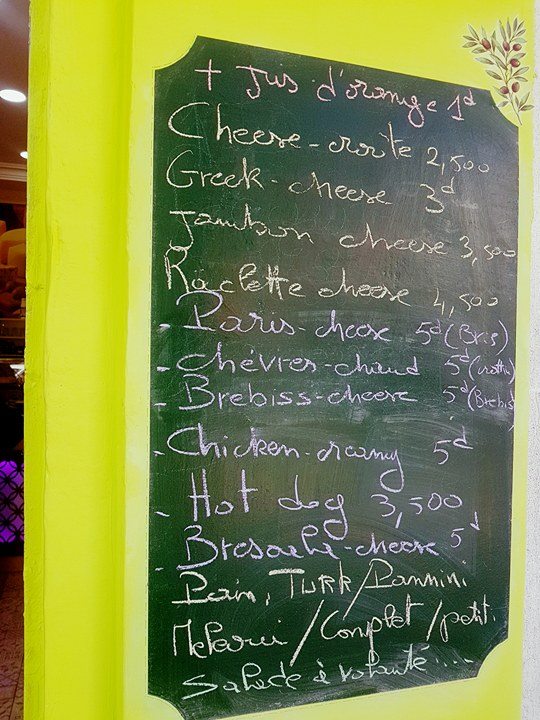 + Jus d'orange 1d
Cheese-croûte 2,500
Greek-cheese 3d
Jambon cheese 3,500
Raclette cheese 4,500
- Paris-cheese 5d (Bris)
- chèvres-chaud 5d
- Brebiss-cheese 5d (Brebis)
- Chicken-creamy 5d
- Hot dog 3,500
- Bresaola-cheese 5d
Pain, TURK / Pannini
Melaoui / Complet / petit.
Salade à volanté....